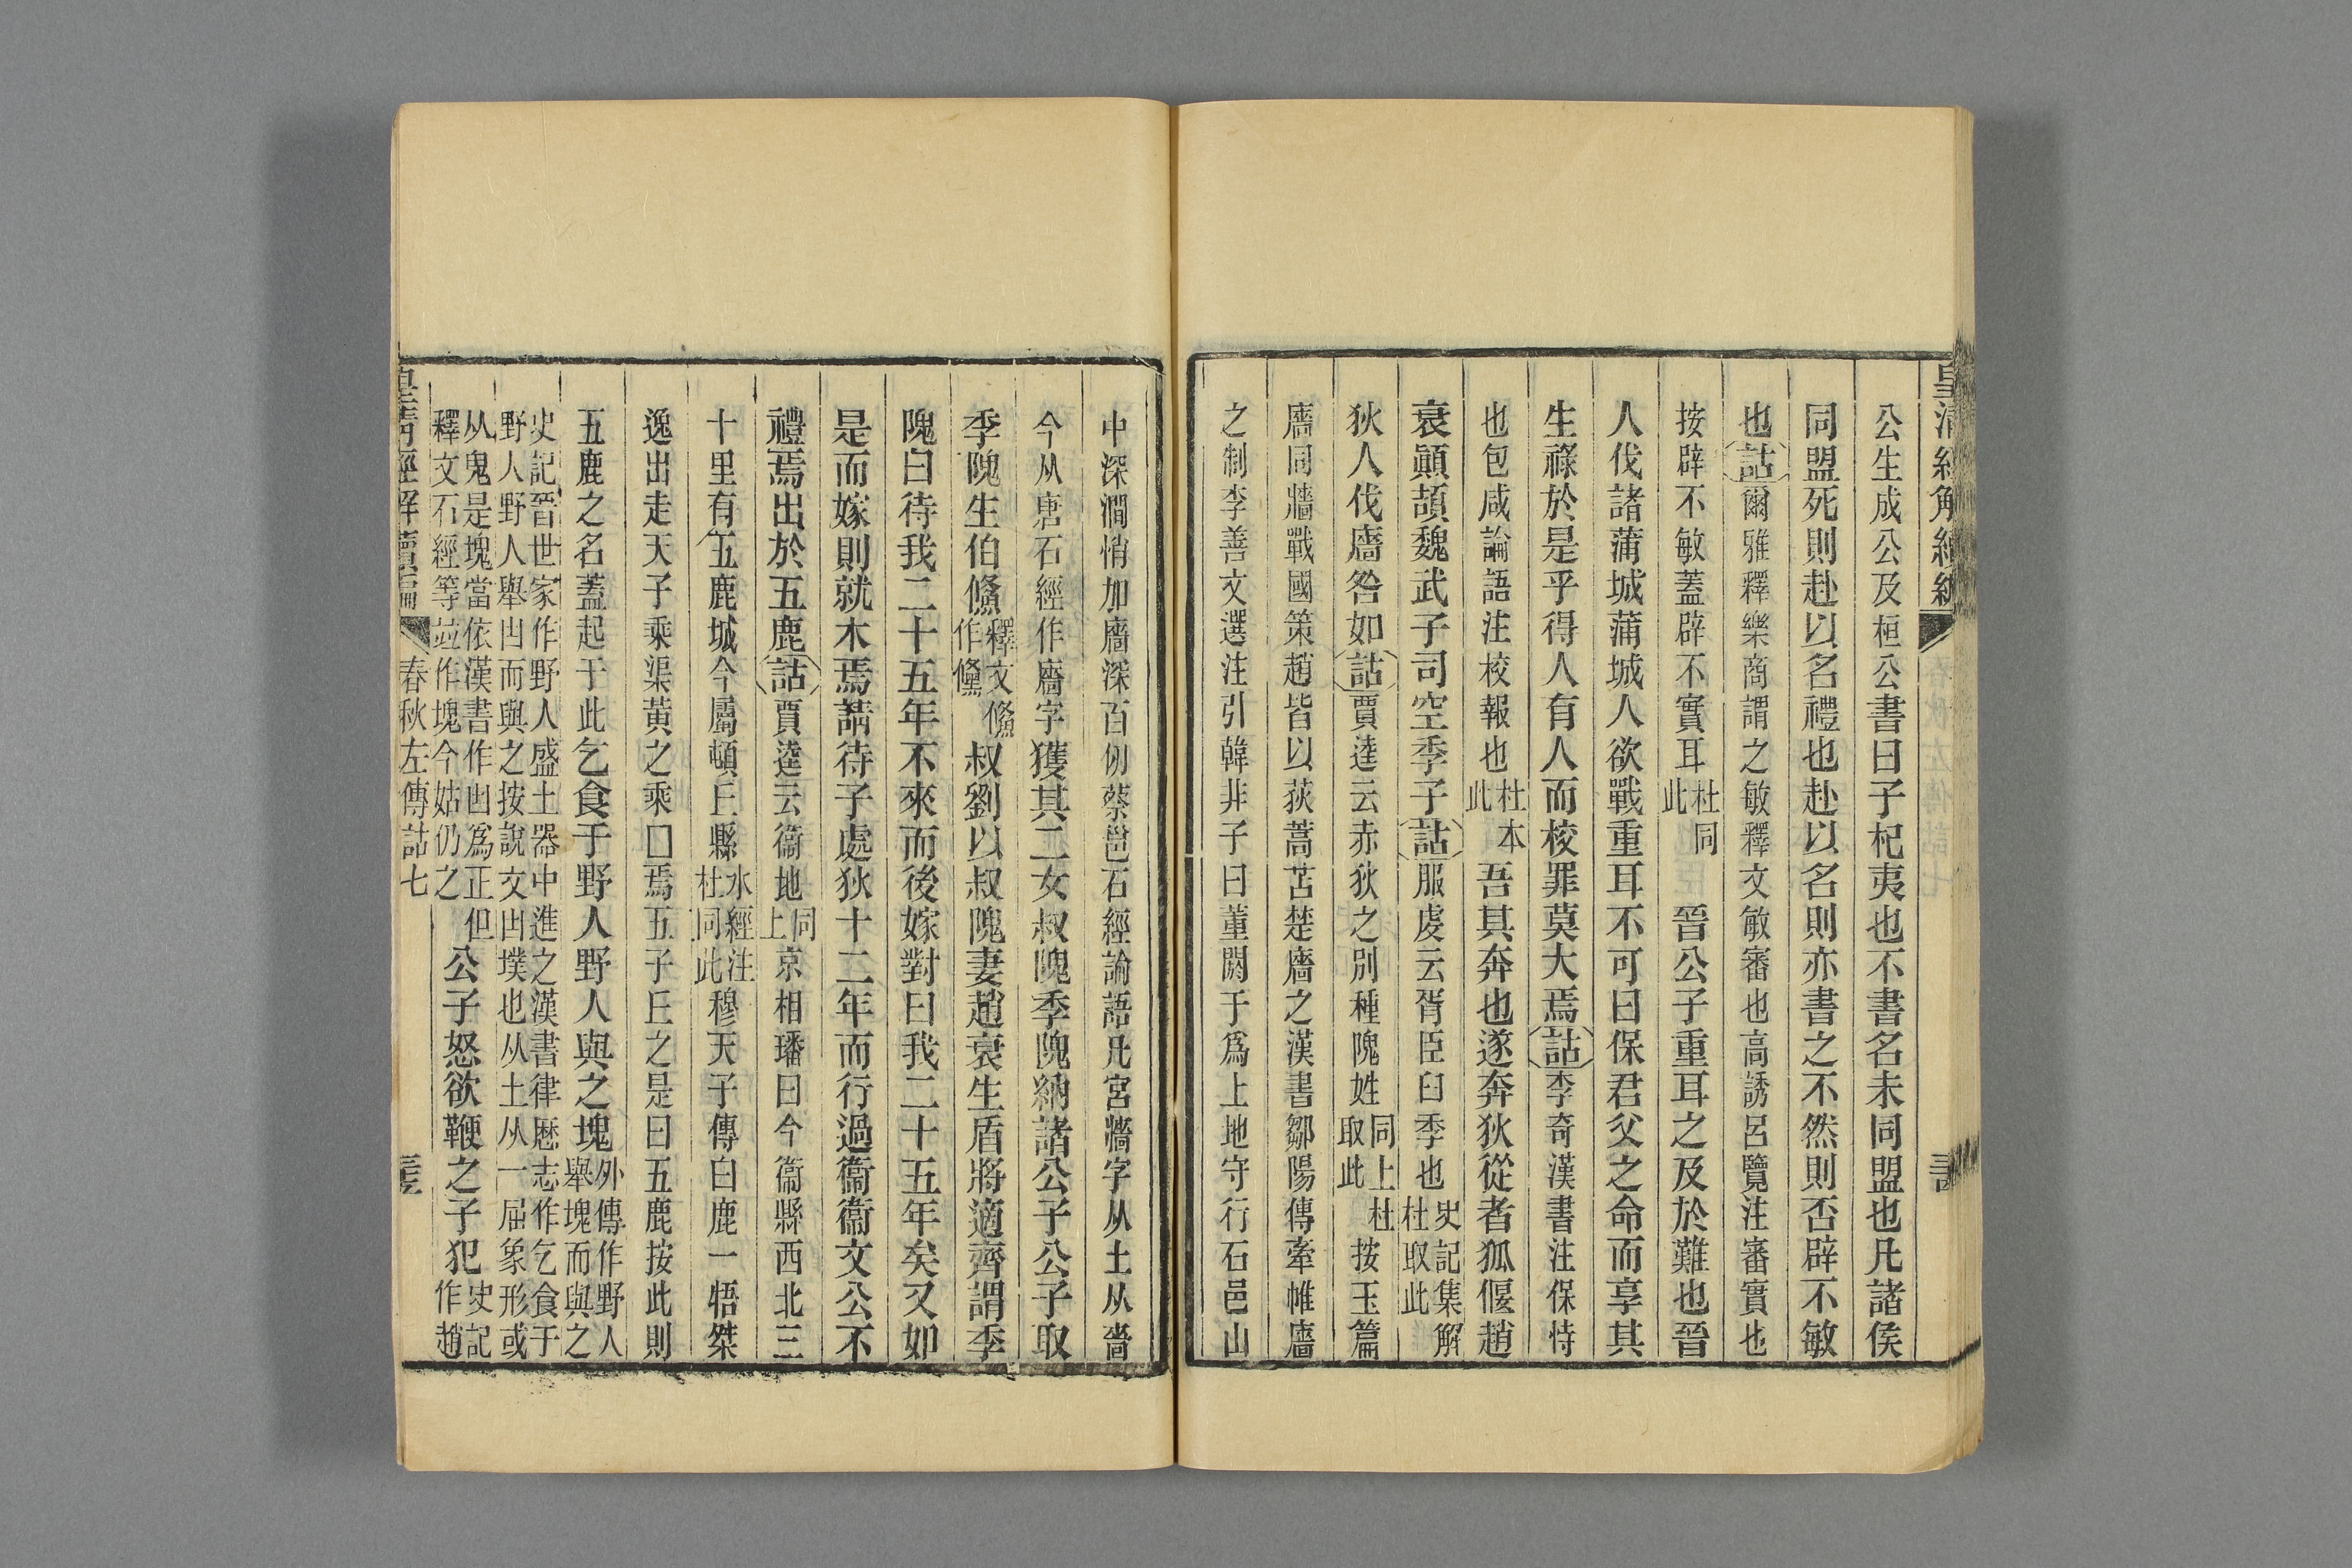 皇清經解續編
公生成公及桓公書曰子杞夷也不書名未同盟也凡諸侯
同盟死則赴以名禮也赴以名則亦書之不然則否辟不敏
也詁爾雅釋樂商謂之敏釋文敏審也高誘呂覽注審實也
按辟不敏蓋辟不實耳杜同此晉公子重耳之及於難也晉
人伐諸蒲城蒲城人欲戰重耳不可曰保君父之命而享其
生祿於是乎得人有人而校罪莫大焉詁李奇漢書注保恃
也包咸論語注校報也杜本此吾其奔也遂奔狄從者狐偃趙
衰顚頡魏武子司空季子詁服虔云胥臣臼季也史記集解杜取此
狄人伐廧咎如詁賈逵云赤狄之別種隗姓同上杜取此按玉篇
廧同牆戰國策趙皆以荻蒿苫楚廧之漢書鄒陽傳牽帷廧
之制李善文選注引韓非子曰董閼于爲上地守行石邑山
中深澗悄加廧深百仞蔡邕石經論語凡宮牆字从土从嗇
今从唐石經作廧字獲其二女叔隗季隗納諸公子公子取
季隗生伯鯈釋文鯈作儵叔劉以叔隗妻趙衰生盾將適齊謂季
隗曰待我二十五年不來而後嫁對曰我二十五年矣又如
是而嫁則就木焉請待子處狄十二年而行過衞衞文公不
禮焉出於五鹿詁賈逵云衞地同上京相璠曰今衞縣西北三
十里有五鹿城今屬頓丘縣水經注杜同此穆天子傳白鹿一牾桀
逸出走天子乘渠黃之乘囗焉五子丘之是曰五鹿按此則
五鹿之名蓋起于此乞食于野人野人與之塊外傳作野人舉塊而與之
史記晉世家作野人盛土器中進之漢書律厯志作乞食于
野人野人舉凷而與之按說文凷墣也从土从一屈象形或
从鬼是塊當依漢書作凷爲正但
釋文石經等竝作塊今姑仍之公子怒欲鞭之子犯史記作趙
皇清經解續編 春秋左傳詁七